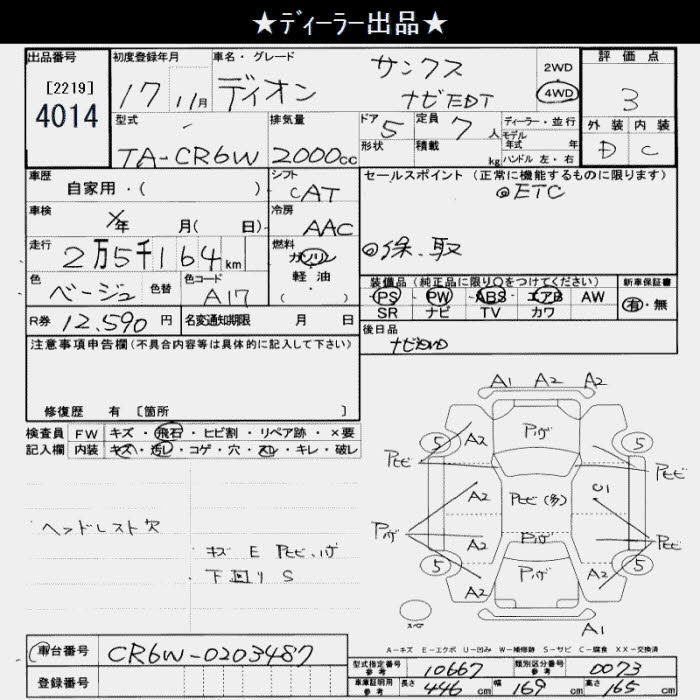 ★ディーラー出品★
出品番号
[2219]
4014
初度登録年月
17 11月
車名・グレード
ディオン サンクス
ナビEDT
2WD
4WD
評価点
3
外装 内装
D C
型式
TA-CR6W
排気量
2000cc
ドア 5
形状
定員 7人
積載 kg
ディーラー・並行
モデル
年式 年
ハンドル 左・右
車歴
自家用・( )
シフト
CAT
車検
年 月(日)
冷房
AAC
走行
2万5千164km
燃料
ガソリン
軽・油
( )
色
ベージュ
色替
色コード
A17
R券 12,590円
名変通知期限 月 日
セールスポイント (正常に機能するものに限ります)
◎ETC
◎保、取
装備品 (純正品に限り○をつけてください)
PS PW ABS エアB AW
SR ナビ TV カワ
新車保証書
有・無
後日品
ナビDVD
注意事項申告欄(不具合内容等は具体的に記入して下さい)
修復歴 有 [箇所 ]
検査員 FW キズ・飛石・ヒビ割・リペア跡・×要
記入欄 内装 キズ・汚レ・コゲ・穴・スレ・キレ・破レ
ヘッドレスト欠
キズ E Pヒビ、ハゲ
下回り S
A1 A2 A2
5 A2 Pハゲ 5
Pヒビ Pヒビ
A2 Pヒビ(多) U1
Pハゲ A2 Pハゲ Pヒビ
5 A2 Pハゲ A2 5
スペア
A1
A-キズ E-エクボ U-凹み W-補修跡 S-サビ C-腐食 XX-交換済
車台番号 CR6W-0203487
登録番号
型式指定番号 参考 10667
類別区分番号 参考 0073
車庫証明用 参考 長さ 446cm 幅 169cm 高さ 165cm